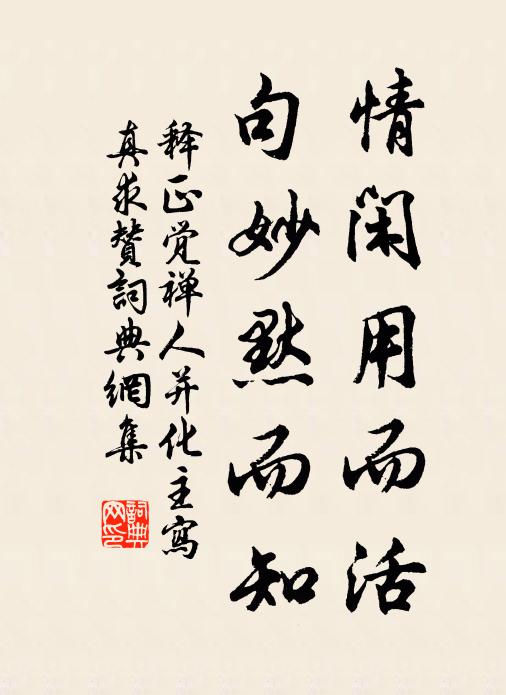 情闲用而活
句妙默而知
释正觉禅人并化主寫
真求贊詞典網集
詞典网印